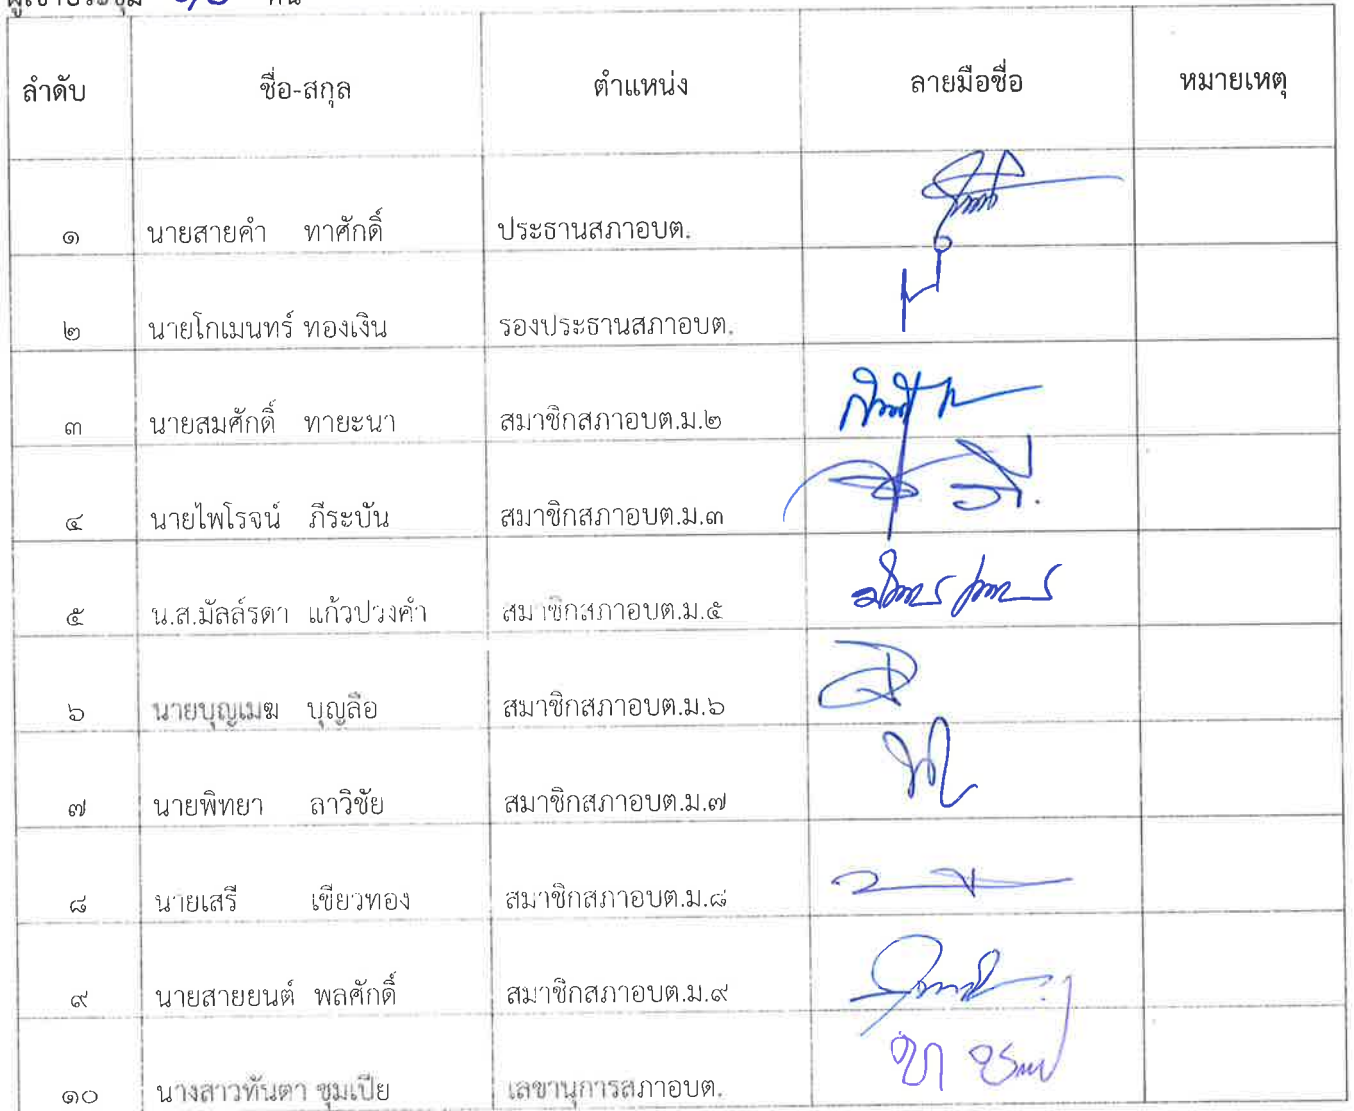 ผู้เข้าประชุม ๑๐ คน
ลำดับ ชื่อ-สกุล ตำแหน่ง ลายมือชื่อ หมายเหตุ
๑ นายสายคำ ทาศักดิ์ ประธานสภาอบต.
๒ นายโกเมนทร์ ทองเงิน รองประธานสภาอบต.
๓ นายสมศักดิ์ ทายะนา สมาชิกสภาอบต.ม.๒
๔ นายไพโรจน์ ภีระบัน สมาชิกสภาอบต.ม.๓
๕ น.ส.มัลล์รดา แก้วปวงคำ สมาชิกสภาอบต.ม.๕
๖ นายบุญเมฆ บุญลือ สมาชิกสภาอบต.ม.๖
๗ นายพิทยา ลาวิชัย สมาชิกสภาอบต.ม.๗
๘ นายเสรี เขียวทอง สมาชิกสภาอบต.ม.๘
๙ นายสายยนต์ พลศักดิ์ สมาชิกสภาอบต.ม.๙
๑๐ นางสาวทันตา ชุมเปีย เลขานุการสภาอบต.